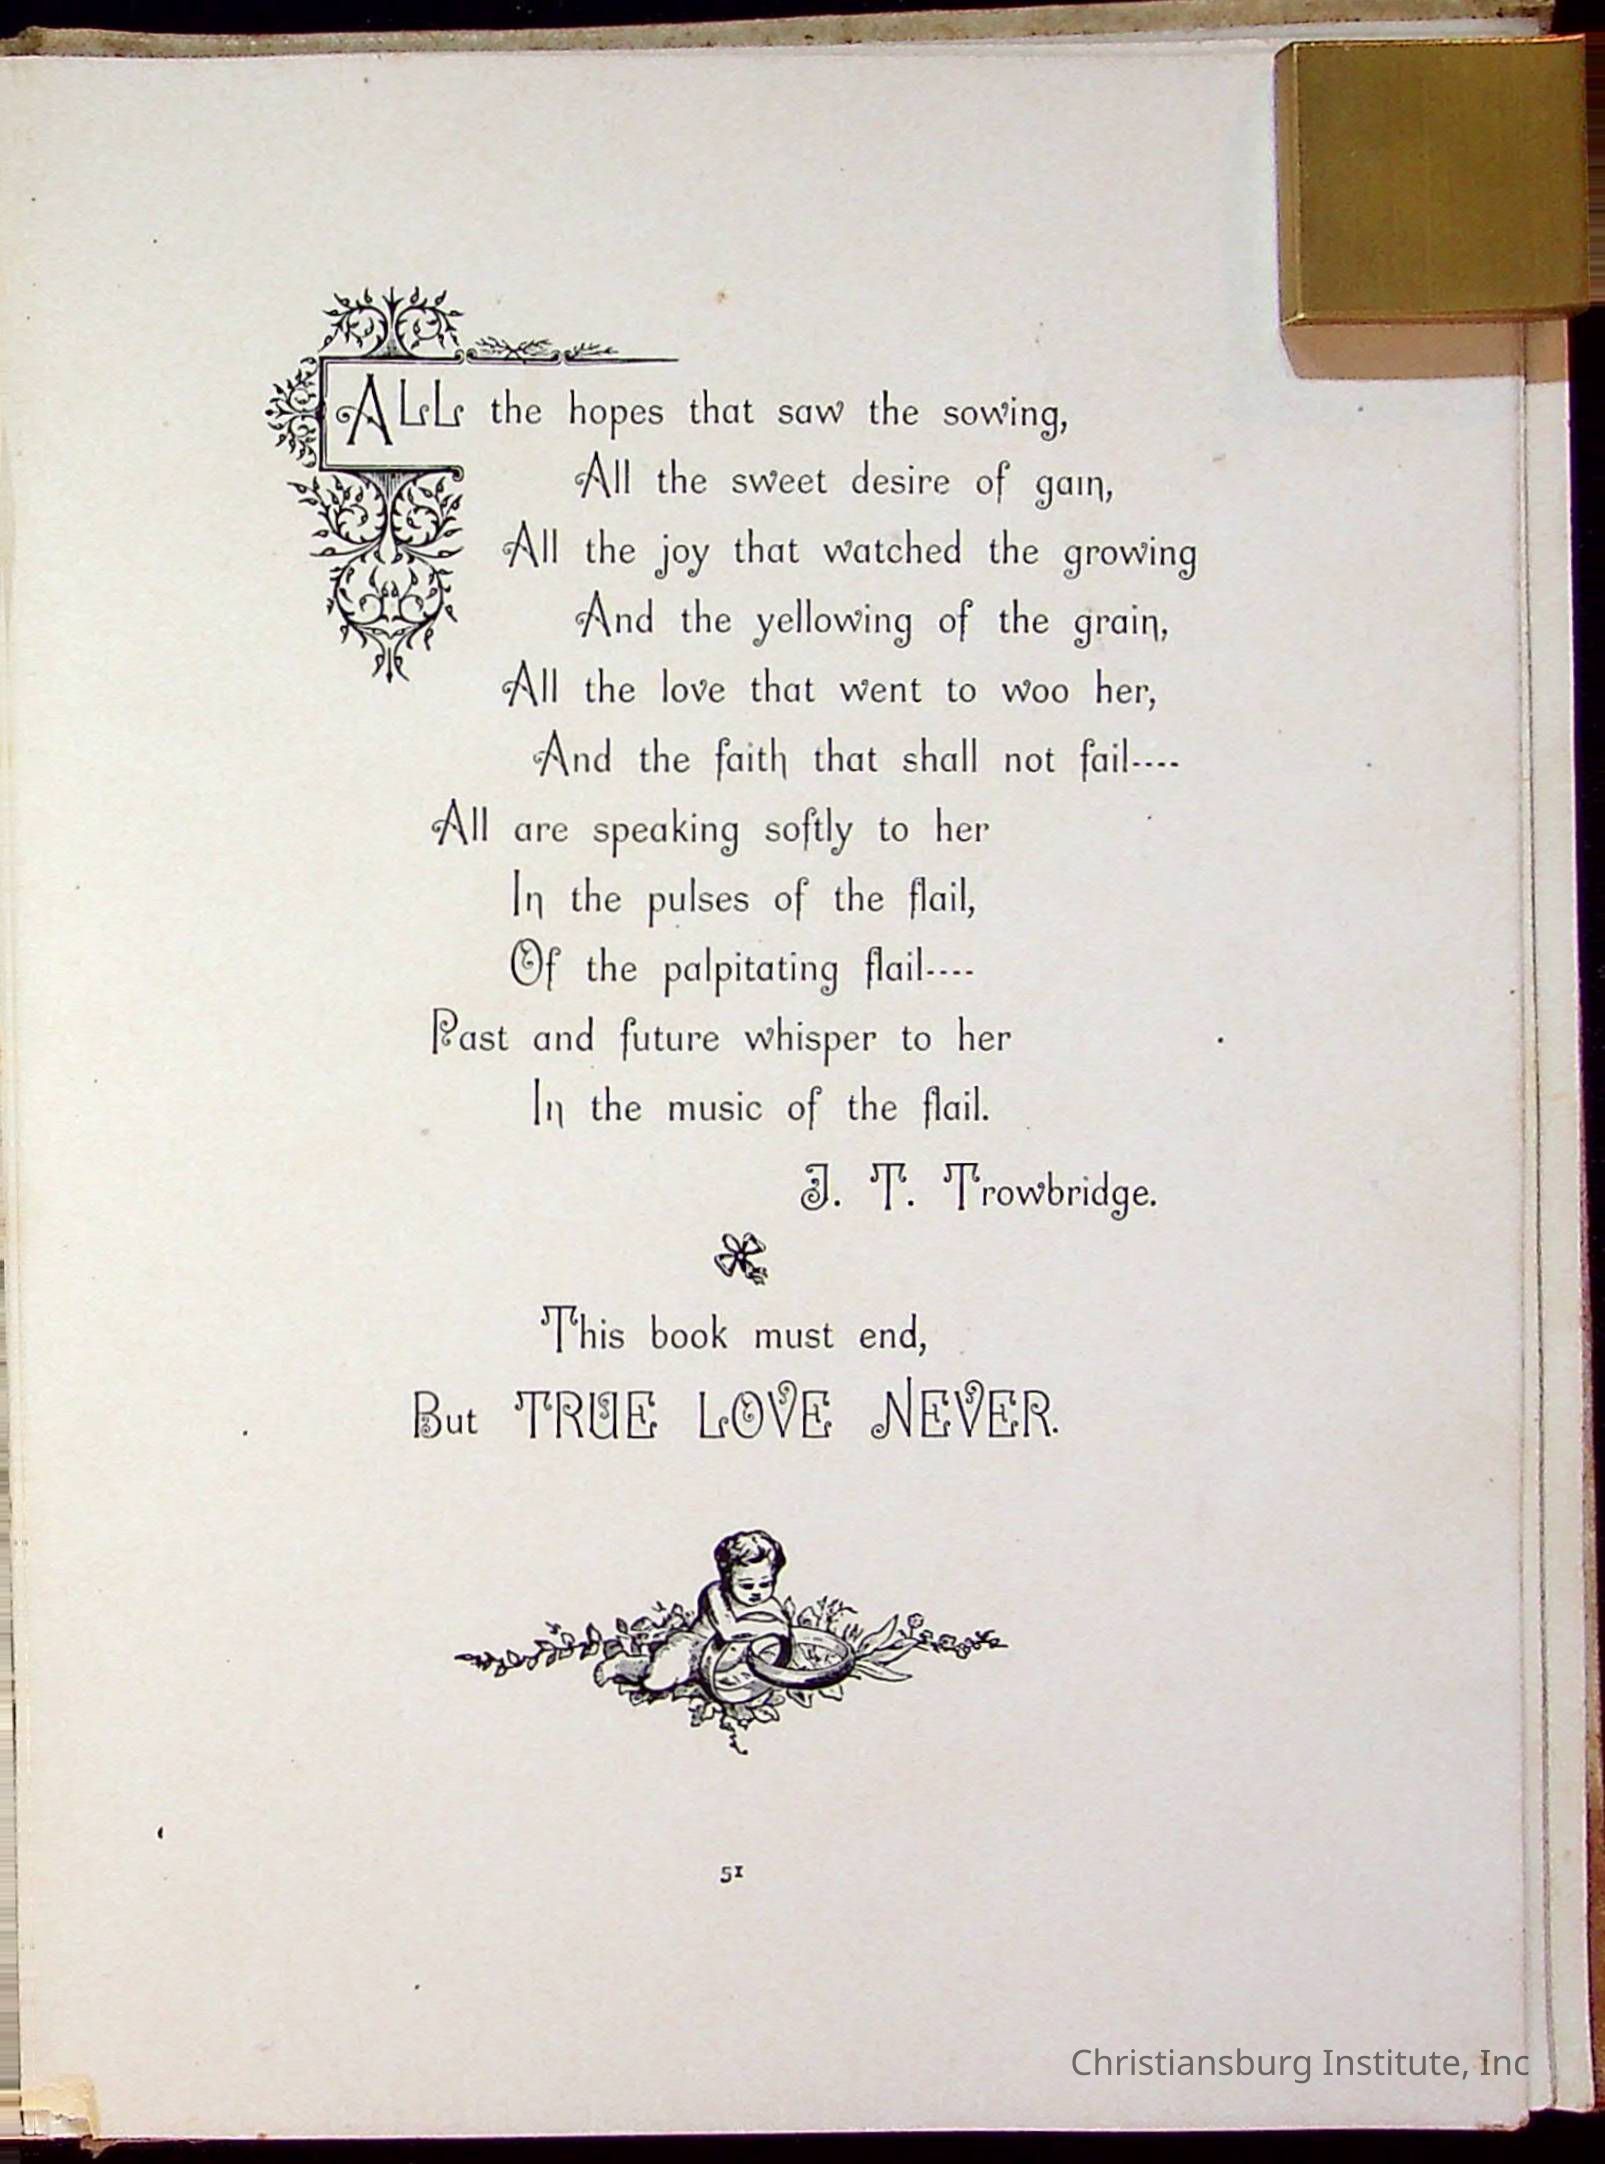 ALL the hopes that saw the sowing,
All the sweet desire of gain,
All the joy that watched the growing
And the yellowing of the grain,
All the love that went to woo her,
And the faith that shall not fail----
All are speaking softly to her
In the pulses of the flail,
Of the palpitating flail----
Past and future whisper to her
In the music of the flail.
J. T. Trowbridge.
This book must end,
But TRUE LOVE NEVER.
51
Christiansburg Institute, Inc